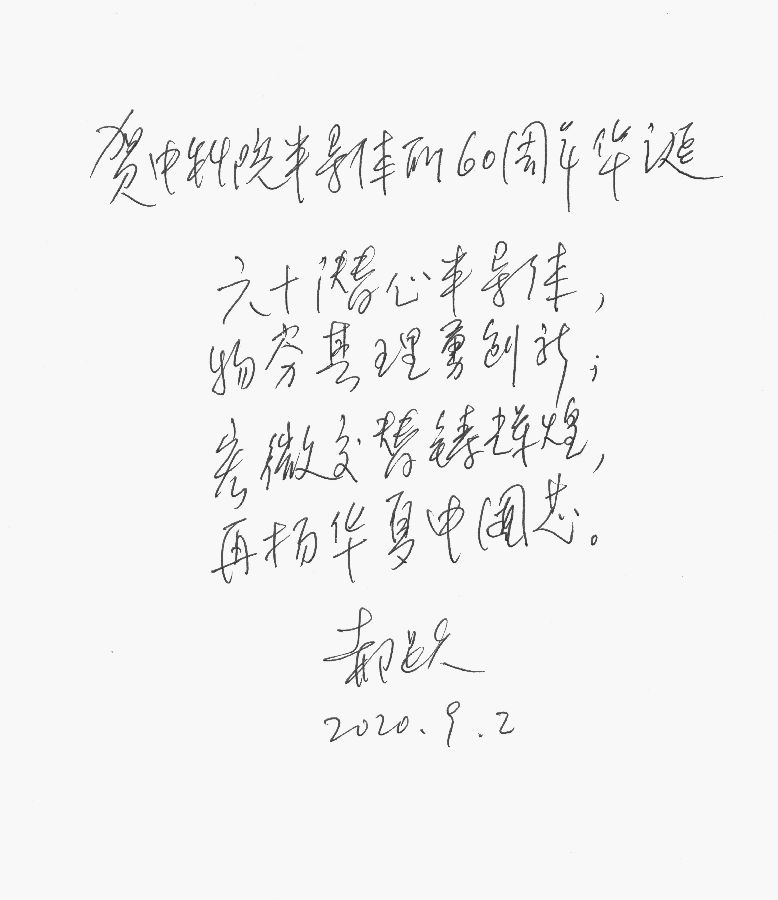 贺中科院半导体所60周年华诞
六十潜心半导体，
物穷其理勇创新；
宏微交替铸辉煌，
再扬华夏中国芯。
郝跃
2020.9.2